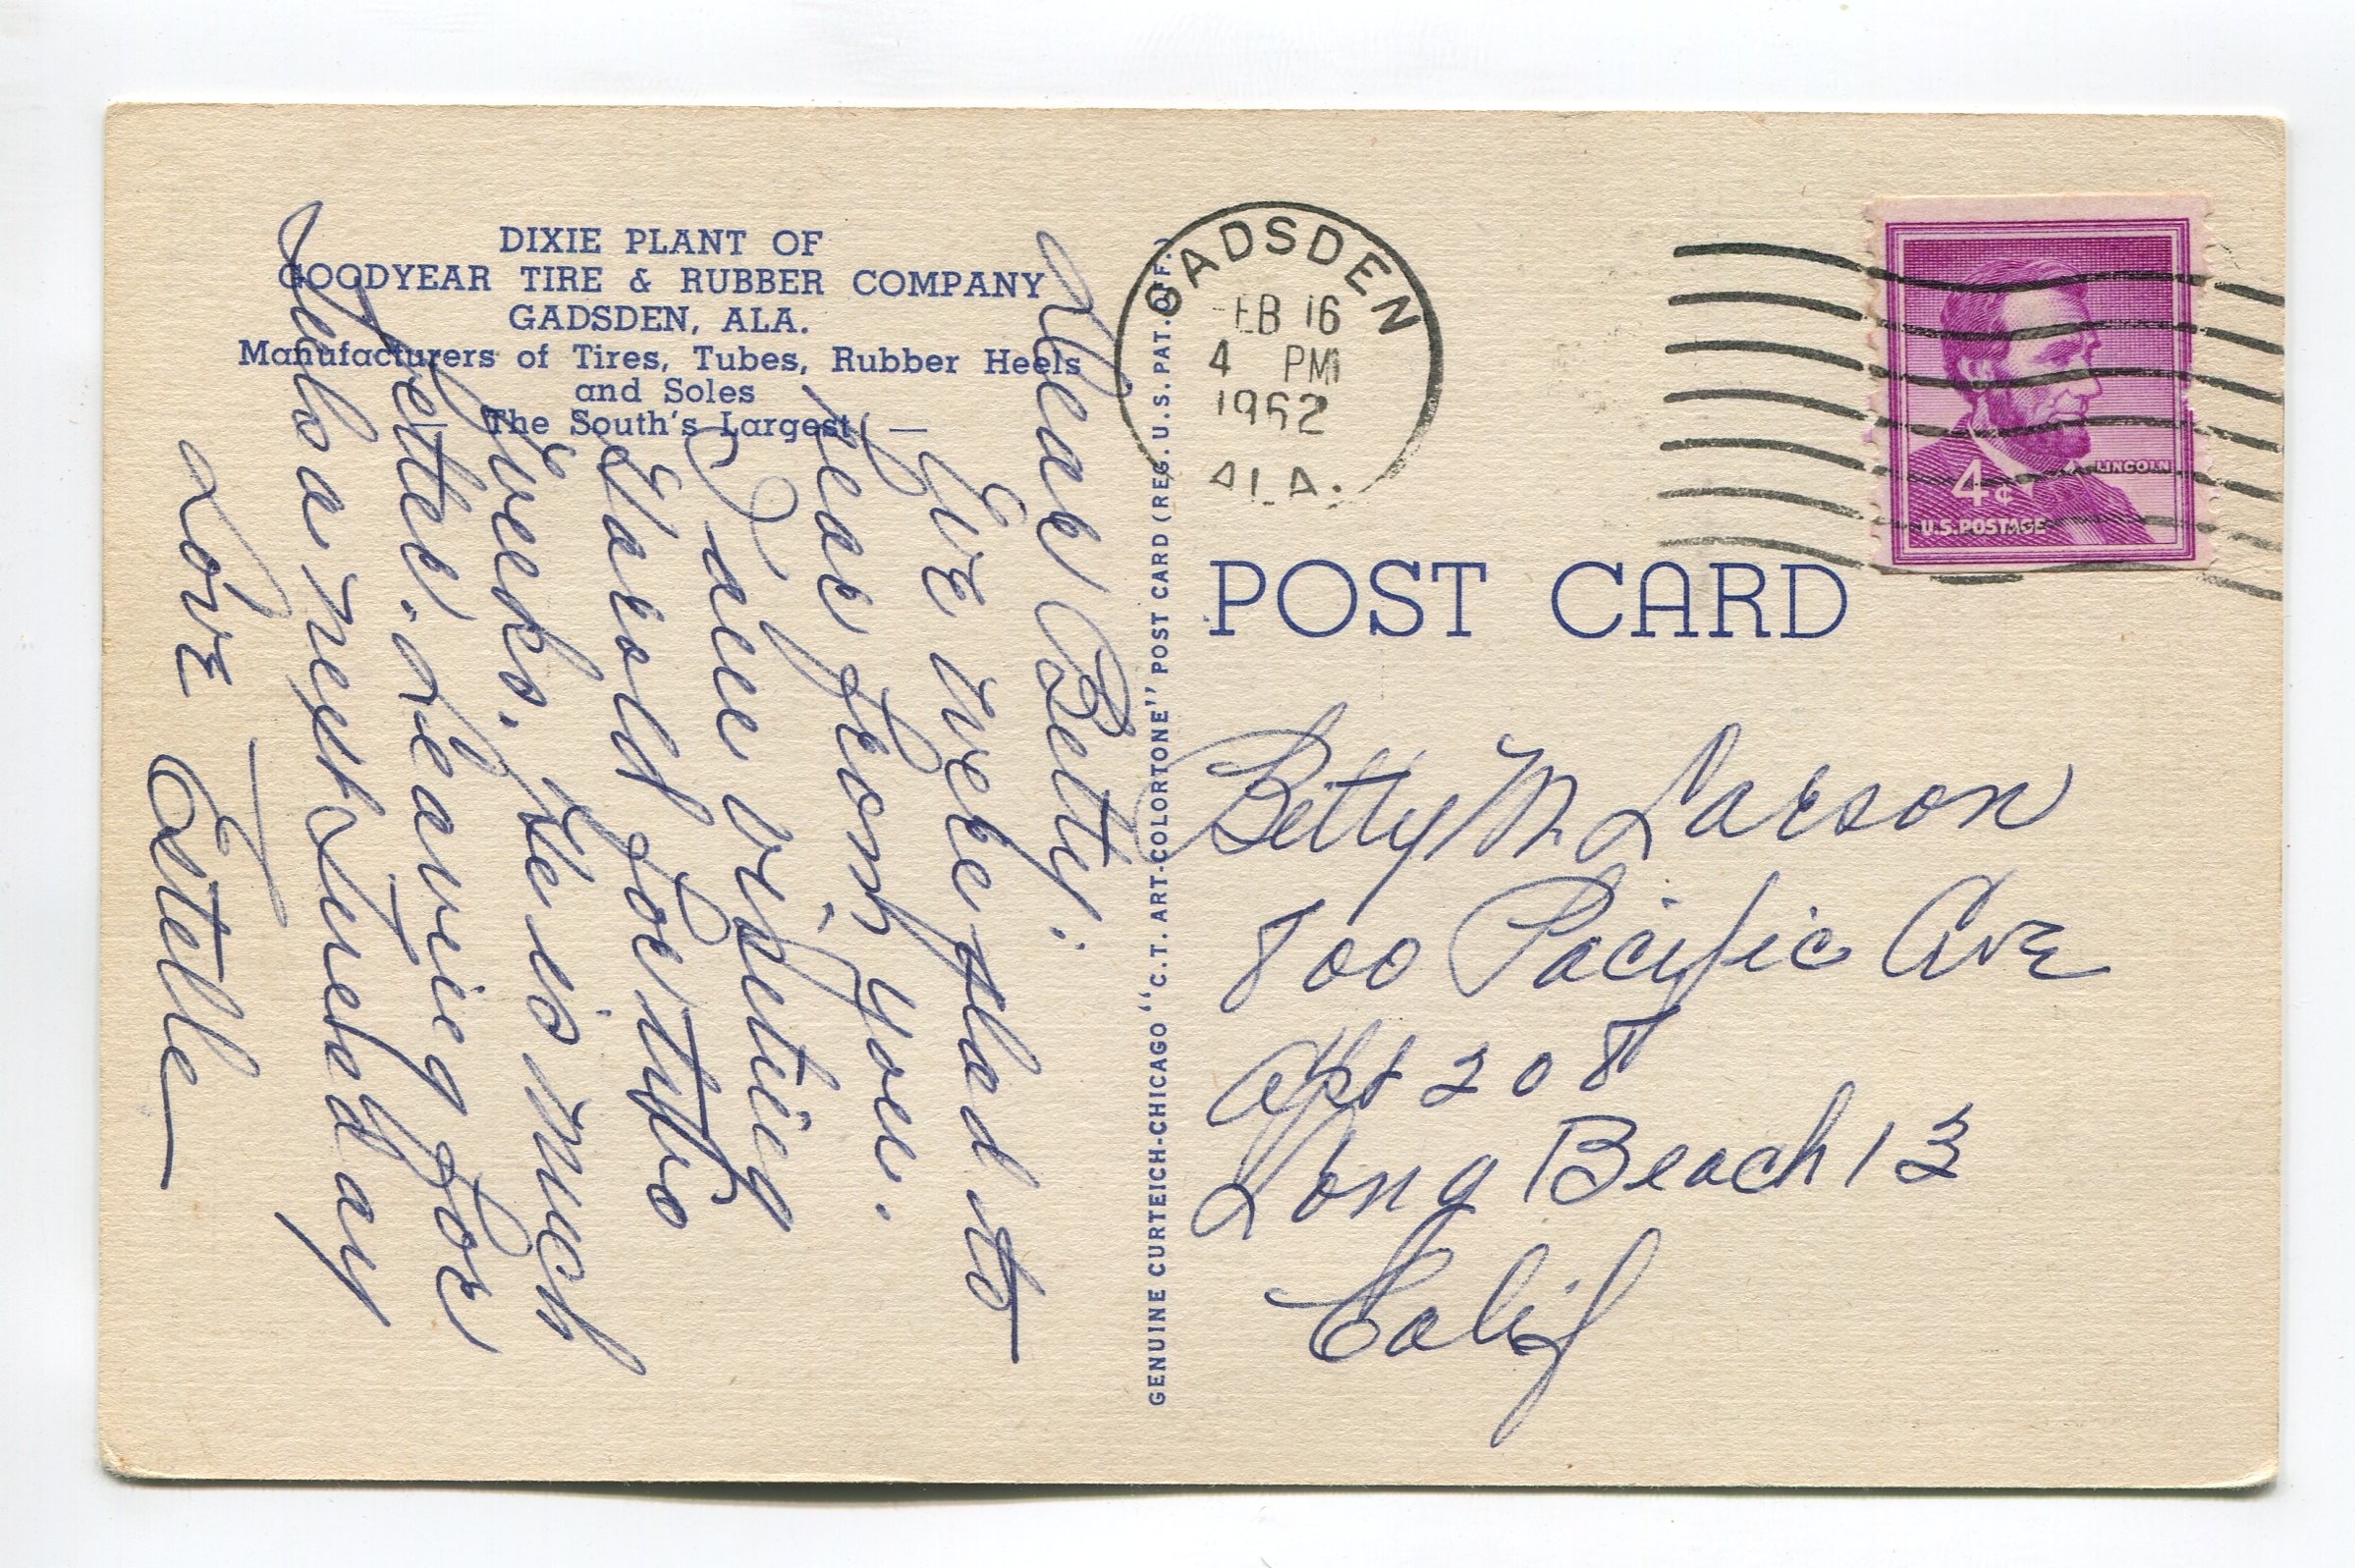 DIXIE PLANT OF
GOODYEAR TIRE & RUBBER COMPANY
GADSDEN, ALA.
Manufacturers of Tires, Tubes, Rubber Heels
and Soles
The South's Largest —
Dear Betty:
We were glad to
hear from you.
I am visiting
Harold for two
weeks. He is much
better. Leaving for
Tulsa next Thursday
Love Estelle
GENUINE CURTEICH-CHICAGO "C.T. ART-COLORTONE" POST CARD (REG. U.S. PAT. OFF.)
GADSDEN
FEB 16
4 PM
1962
ALA.
LINCOLN
4¢
U.S. POSTAGE
POST CARD
Betty M. Larson
800 Pacific Ave
Apt 208
Long Beach 13
Calif